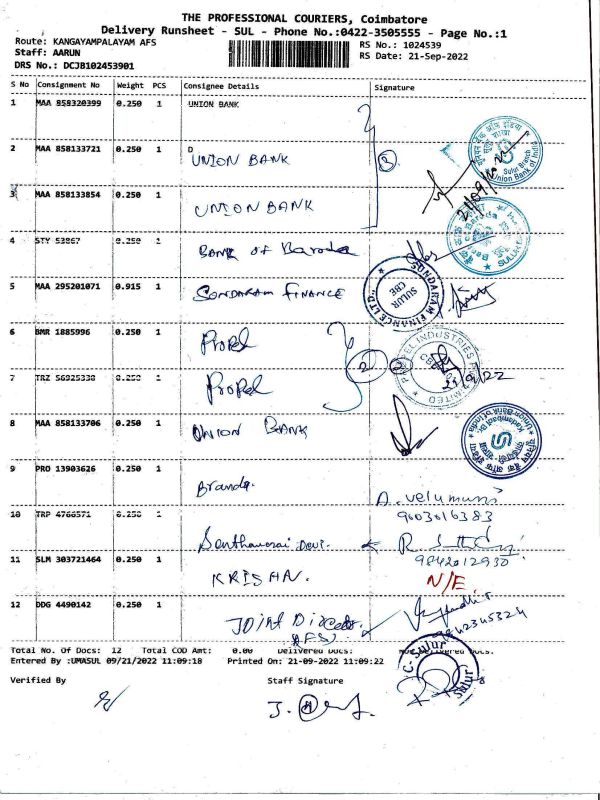 THE PROFESSIONAL COURIERS, Coimbatore
Delivery Runsheet - SUL - Phone No.:0422-3505555 - Page No.:1
Route: KANGAYAMPALAYAM AFS
RS No.: 1024539
Staff: AARUN
RS Date: 21-Sep-2022
DRS No.: DCJB102453901
S No Consignment No Weight PCS Consignee Details Signature
1 MAA 858320399 0.250 1 UNION BANK
2 MAA 858133721 0.250 1 D
UNION BANK
3
3 MAA 858133854 0.250 1
UNION BANK
21/09/2022
4 STY 53867 0.250 1 BANK of Baroda
5 MAA 295201071 0.915 1 SONDARAM FINANCE
SUNDARAM FINANCE LTD
SULUR
CBE
6 BMR 1885996 0.250 1 Propel
2
7 TRZ 56925338 0.250 1 Propel
21/9/22
8 MAA 858133706 0.250 1 UNION BANK
9 PRO 13903626 0.250 1
Branda.
A. Velumani
9603016383
10 TRP 4766571 0.250 1
Devi.
9842012930
11 SLM 303721464 0.250 1 KRISHN.
N/E
12 DDG 4490142 0.250 1
JOINT Director
AFS
9842345324
Total No. Of Docs: 12 Total COD Amt: 0.00 Delivered Docs: Not Delivered Docs:
Entered By :UMASUL 09/21/2022 11:09:18 Printed On: 21-09-2022 11:09:22
C-Sulur
Sulur
Verified By Staff Signature